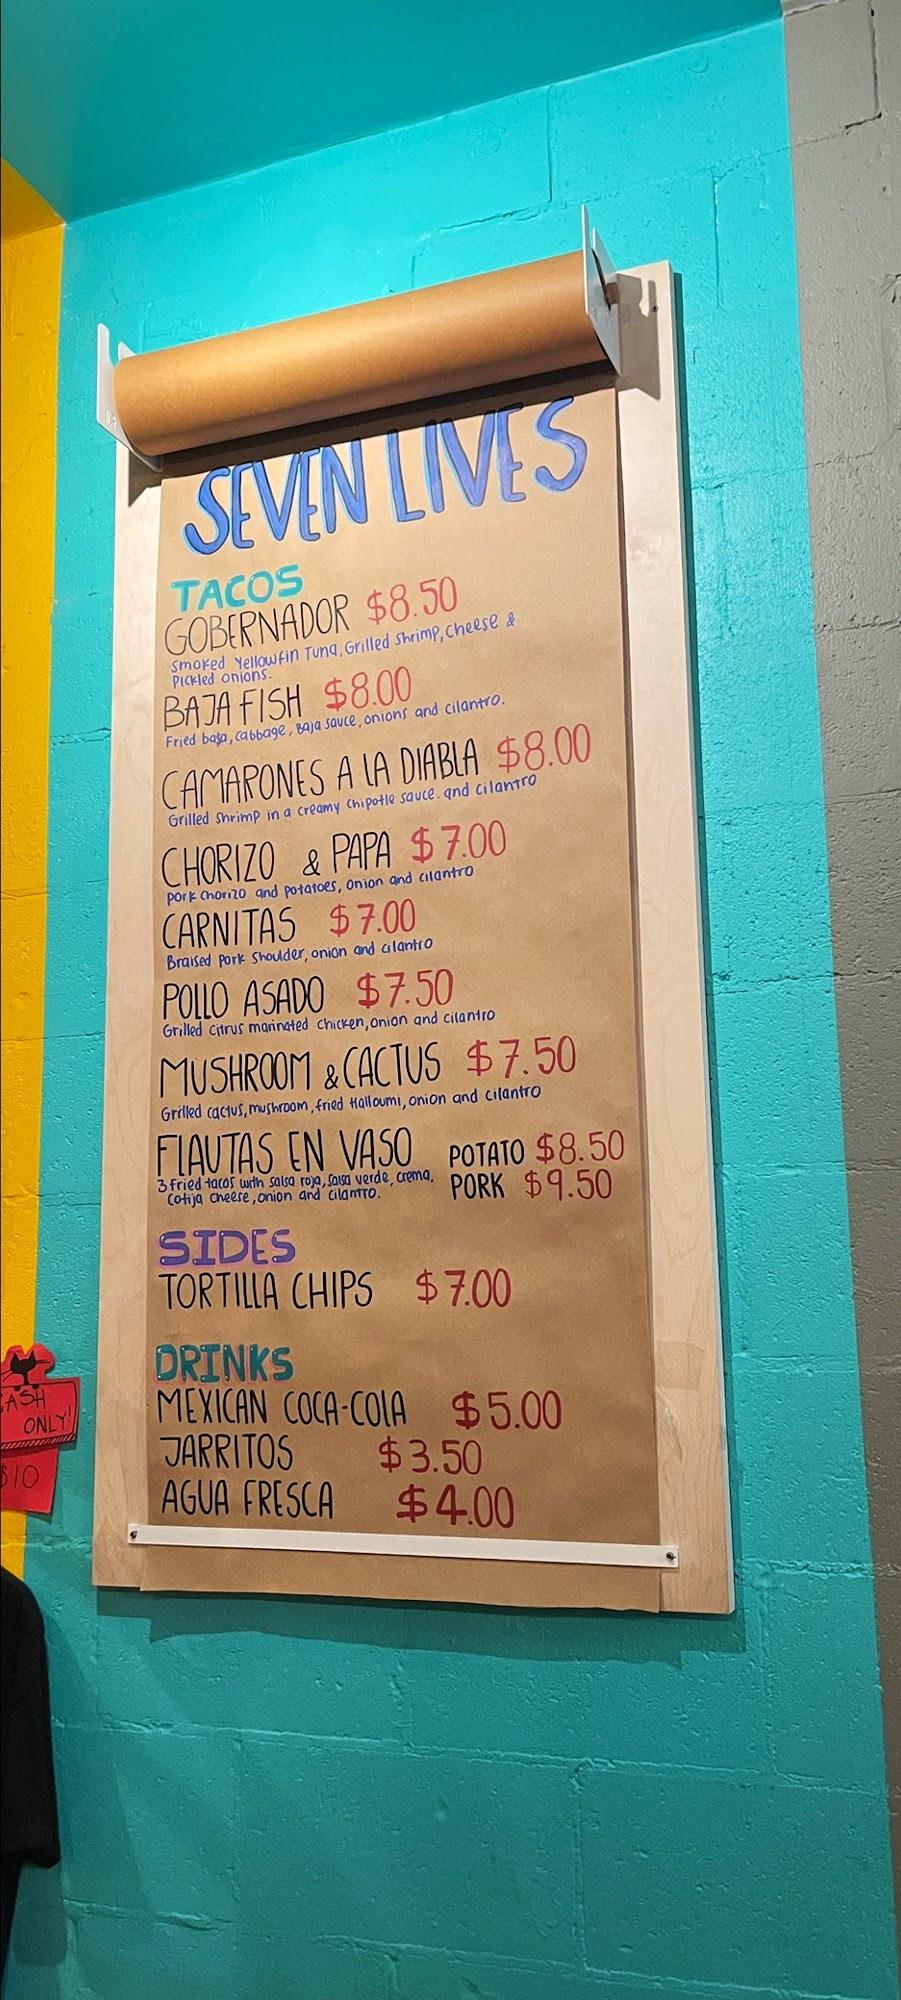 SEVEN LIVES
TACOS
GOBERNADOR $8.50
Smoked Yellowfin Tuna, Grilled Shrimp, Cheese &
Pickled onions.
BAJA FISH $8.00
Fried basa, cabbage, Baja sauce, onions and cilantro.
CAMARONES A LA DIABLA $8.00
Grilled Shrimp in a creamy Chipotle sauce. and cilantro
CHORIZO & PAPA $7.00
pork Chorizo and potatoes, onion and cilantro
CARNITAS $7.00
Braised Pork Shoulder, onion and cilantro
POLLO ASADO $7.50
Grilled citrus marinated chicken, onion and cilantro
MUSHROOM & CACTUS $7.50
Grilled cactus, mushroom, fried Halloumi, onion and cilantro
FLAUTAS EN VASO POTATO $8.50
3 Fried tacos with salsa roja, salsa verde, crema, PORK $9.50
Cotija cheese, onion and cilantro.
SIDES
TORTILLA CHIPS $7.00
DRINKS
MEXICAN COCA-COLA $5.00
JARRITOS $3.50
AGUA FRESCA $4.00
CASH
ONLY!
$10